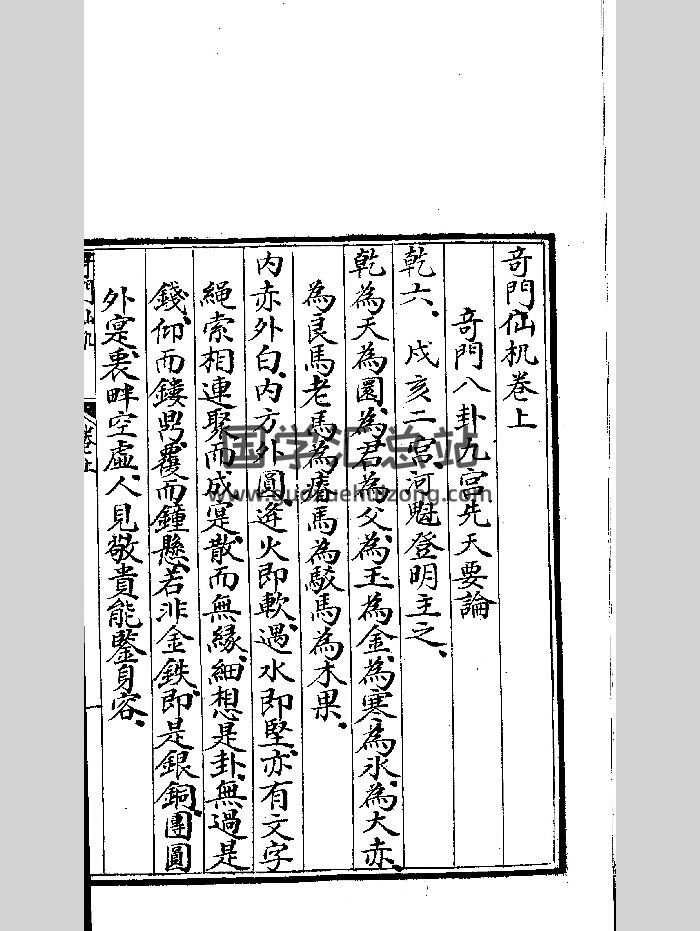 奇門仙机卷上
奇門八卦九宮先天要論
乾六、戌亥二宮、河魁登明主之、
乾為天為圜、為君為父、為玉為金、為寒為氷、為大赤、
為良馬老馬為瘠馬為駁馬為木果、
內赤外白、內方外圓、逄火即軟、遇水即堅、亦有文字
繩索相連、聚而成寔、散而無縁、細想是卦、無過是
錢、仰而鏤鼎、覆而鐘懸、若非金鉄、即是銀銅、團圓
外寔、裏畔空虛、人見敬貴能鑒身容、
奇門仙机
卷上
国学汇总站
www.guoxuehuizong.com